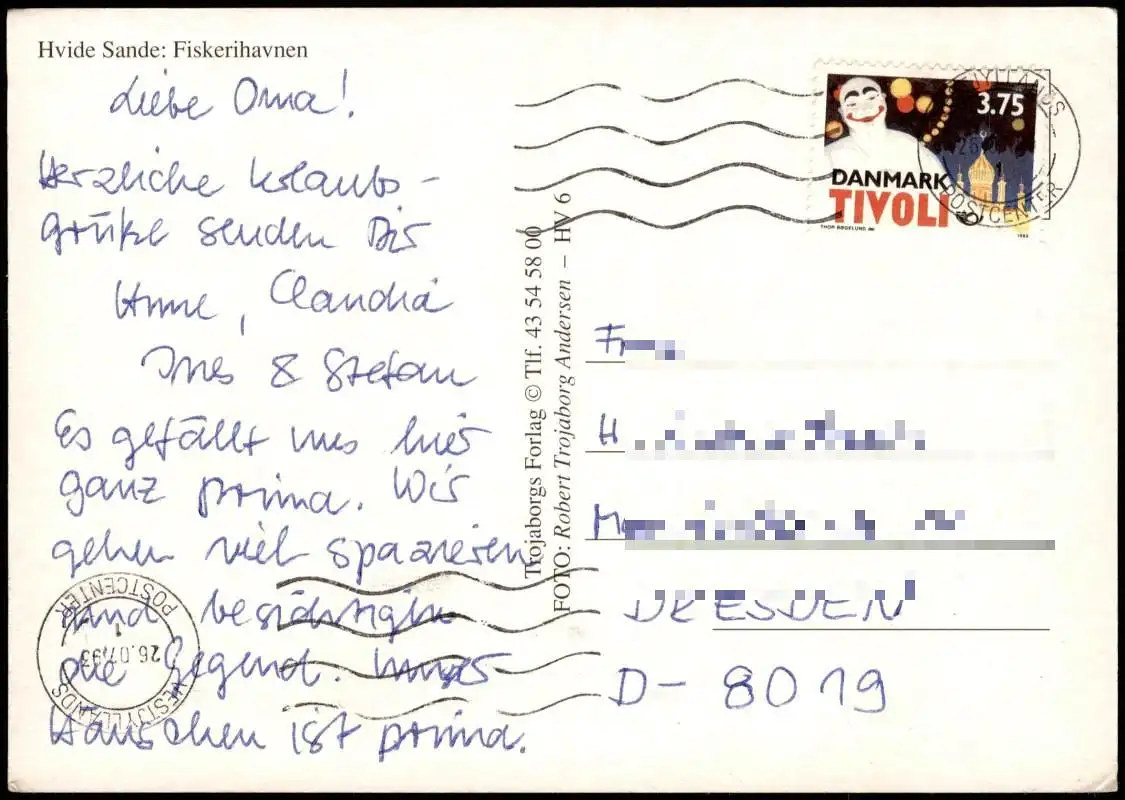 Hvide Sande: Fiskerihavnen
Liebe Oma!
Herzliche Urlaubs-
grüße senden Dir
Anne, Claudia
Ines & Stefan
Es gefällt uns hier
ganz prima. Wir
gehen viel spazieren
und besichtigen
die Gegend. Unser
Häuschen ist prima.
POSTCENTER
1
26.07.93
VESTJYLLANDS
Trojaborgs Forlag © Tlf. 43 54 58 00
FOTO: Robert Trojaborg Andersen – HV 6
3.75
DANMARK
TIVOLI
THOR BØGELUND
1993
POSTCENTER
F
H
M
DRESDEN
D-8019